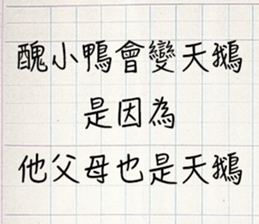 醜小鴨會變天鵝
是因為
他父母也是天鵝